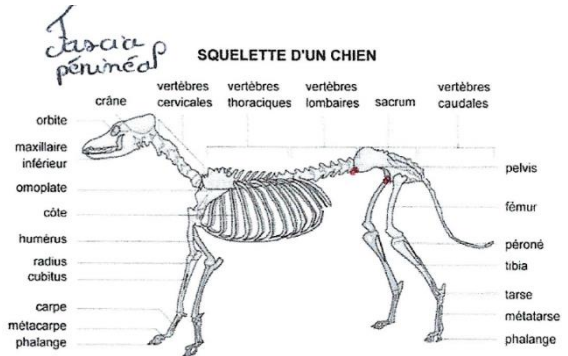 Fascia
périnéal
SQUELETTE D'UN CHIEN
crâne
vertèbres
cervicales
vertèbres
thoraciques
vertèbres
lombaires
sacrum
vertèbres
caudales
orbite
maxillaire
inférieur
omoplate
côte
humérus
radius
cubitus
carpe
métacarpe
phalange
pelvis
fémur
péroné
tibia
tarse
métatarse
phalange